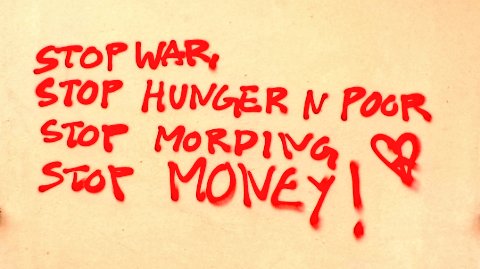 STOP WAR,
STOP HUNGER N POOR
STOP MORDING
STOP MONEY!